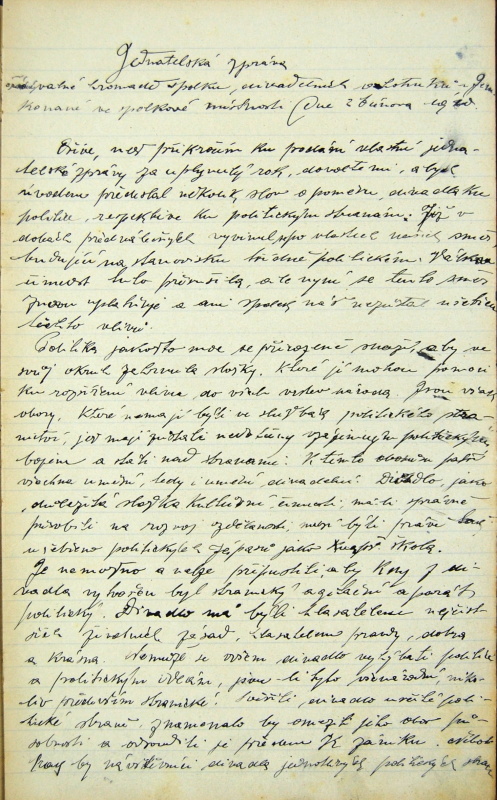 Jednatelská zpráva
valné hromadě spolku divadelních ochotníků v
konané ve spolkové místnosti dne 2 února
Dříve, než přikročím ku podání vlastní jedna-
telské zprávy za uplynulý rok, dovolte mi, abych
úvodem předeslal několik slov o poměru divadla ku
politice, respektive ku politickým stranám. Již v
dobách předválečných vyvinul se
budující na stanovisku třídně politickém. Válka
činnost tuto přerušila, ale nyní se tento směr
znovu uplatňuje a ani spolek náš nezůstal ušetřen
těchto vlivů.
Politika jakožto moc se přirozeně snaží, aby ve
svůj okruh zahrnula složky, které jí mohou pomoci
ku rozšíření vlivu do všech vrstev národa. Jsou však
obory, které nemají býti ve službách politického
nýbrž mají zůstati nedotčeny vzájemným politickým
bojem a státi nad stranami. K těmto oborům patří
všechna umění, tedy i umění divadelní. Divadlo, jako
důležitá složka kulturní činnosti, má-li správně
působiti na rozvoj vzdělanosti, musí býti právě tak
ušetřeno politických zápasů jako škola.
Je nemožno a nelze připustiti, aby kdy z di-
vadla vytvořen byl stranický agitační aparát
politický. Divadlo má býti hlasatelem nejčist
ších životních zásad, hlasatelem pravdy, dobra
a krásna. Nemůže se ovšem divadlo vyhýbati politice
a politickým ideám, jsou-li tyto všenárodní, nika-
liv především stranické. divadlo určité poli-
tické straně, znamenalo by omeziti jeho obor pů-
sobnosti a odsouditi je předem k zániku.
by návštěvníci divadla jednotlivých politických stran